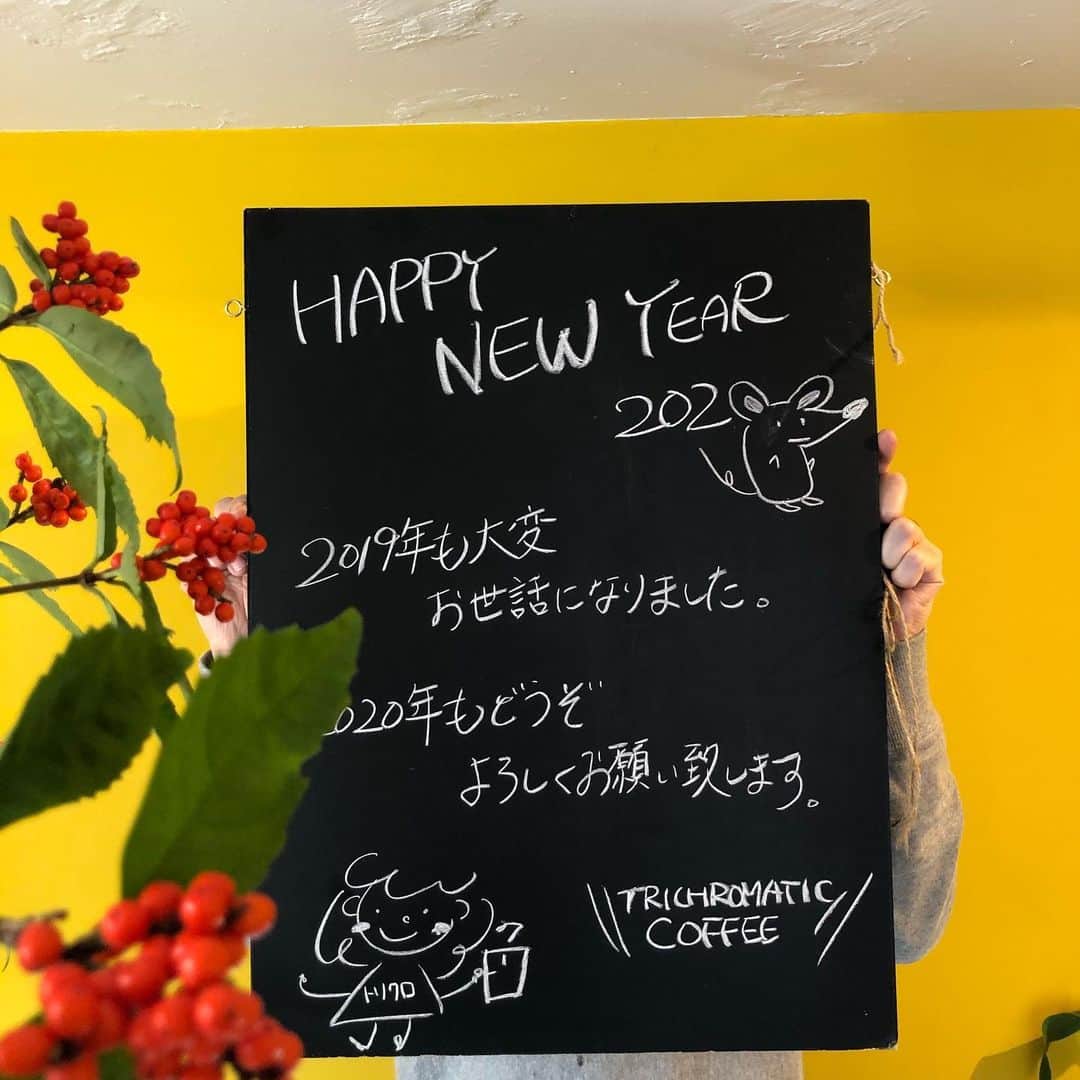 HAPPY
NEW YEAR
202
2019年も大変
お世話になりました。
2020年もどうぞ
よろしくお願い致します。
トリクロ
TRICHROMATIC
COFFEE